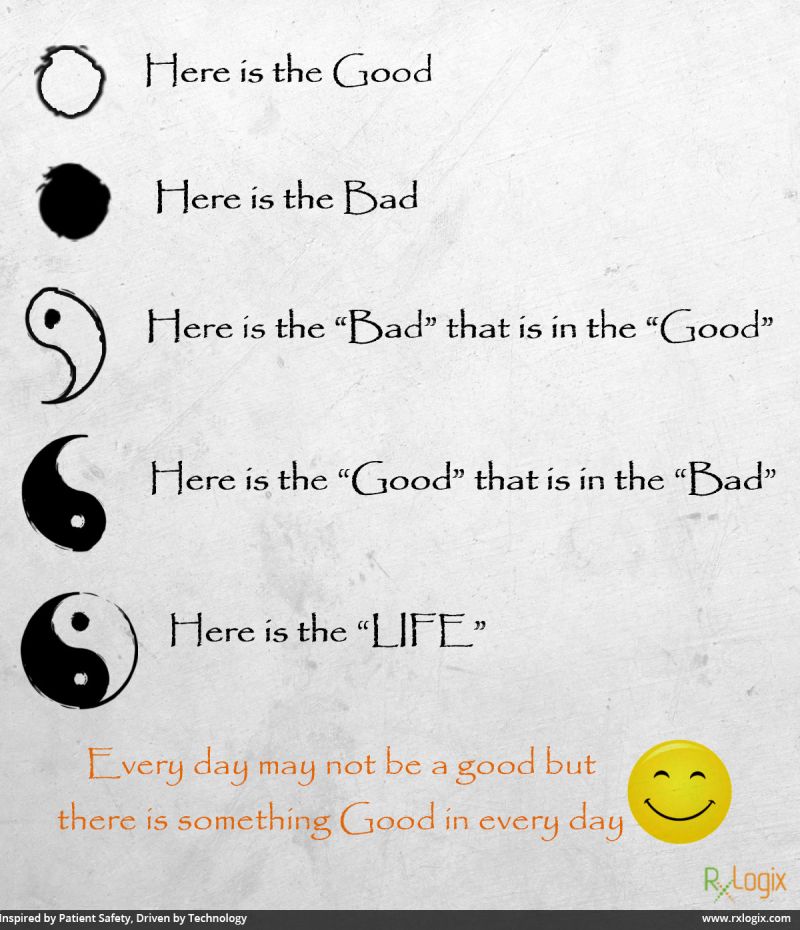 Here is the Good
Here is the Bad
Here is the “Bad” that is in the “Good”
Here is the “Good” that is in the “Bad”
Here is the “LIFE”
Every day may not be a good but
there is something Good in every day
RxLogix
Inspired by Patient Safety, Driven by Technology
www.rxlogix.com